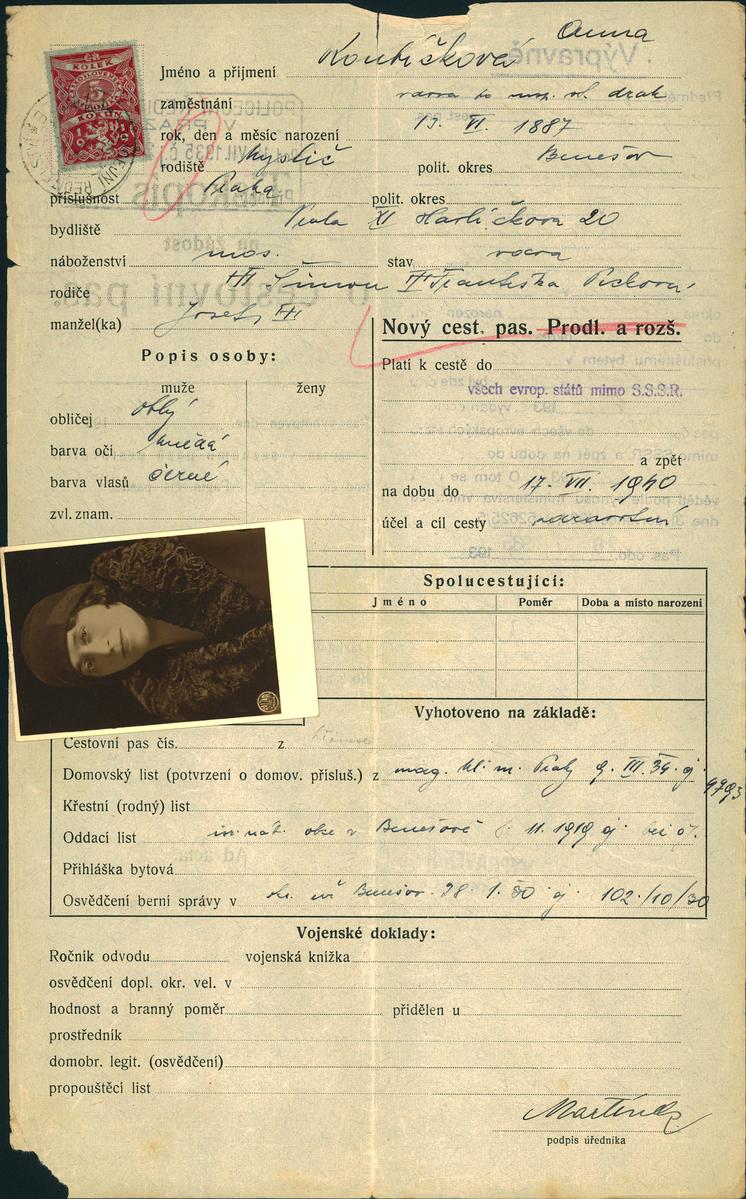 KOLEK
5
Anna
Jméno a příjmení Koutíčková
zaměstnání vdova po
rok, den a měsíc narození 13. VI. 1887
rodiště Myslič polit. okres Benešov
příslušnost Praha polit. okres
bydliště Praha XI Harlíčkova 20
náboženství mos. stav vdova
rodiče Šimon Františka Picková
manžel(ka) Josef
Nový cest. pas. Prodl. a rozš.
Popis osoby:
muže ženy
obličej oblý
barva očí hnědá
barva vlasů černé
zvl. znam.
Platí k cestě do
všech evrop. států mimo S.S.S.R.
a zpět
na dobu do 17. VII. 1940
účel a cíl cesty
Spolucestující:
Jméno Poměr Doba a místo narození
Vyhotoveno na základě:
Cestovní pas čís. z
Domovský list (potvrzení o domov. přísluš.) z mag. hl. m. Prahy 9. III. 34. čj. 9793
Křestní (rodný) list
Oddací list v Benešově 11. 1919 čj. bez čj.
Přihláška bytová
Osvědčení berní správy v Benešov 28. 1. 30 čj. 102/10/30
Vojenské doklady:
Ročník odvodu vojenská knížka
osvědčení dopl. okr. vel. v
hodnost a branný poměr přidělen u
prostředník
domobr. legit. (osvědčení)
propouštěcí list
podpis úředníka